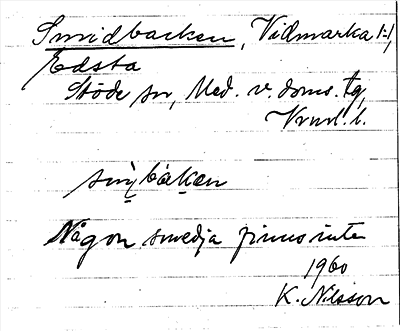 Smidbacken, Vidmarka 1:1,
Edsta
Stöde sn, Med. v. doms. tg,
Vrnl. l.
smi̯bàḵen
Någon smedja finns inte
1960
K. Nilsson